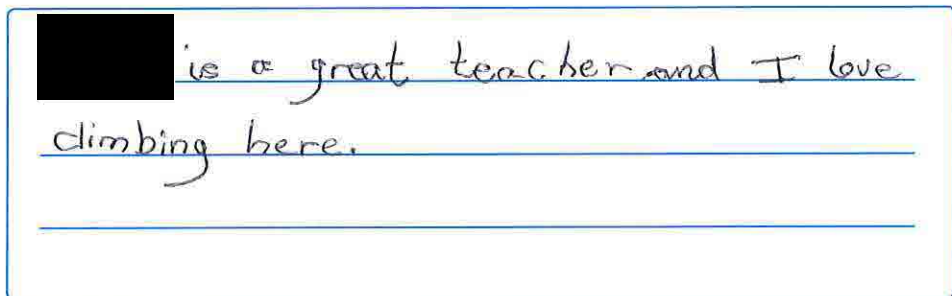 is a great teacher and I love
climbing here.